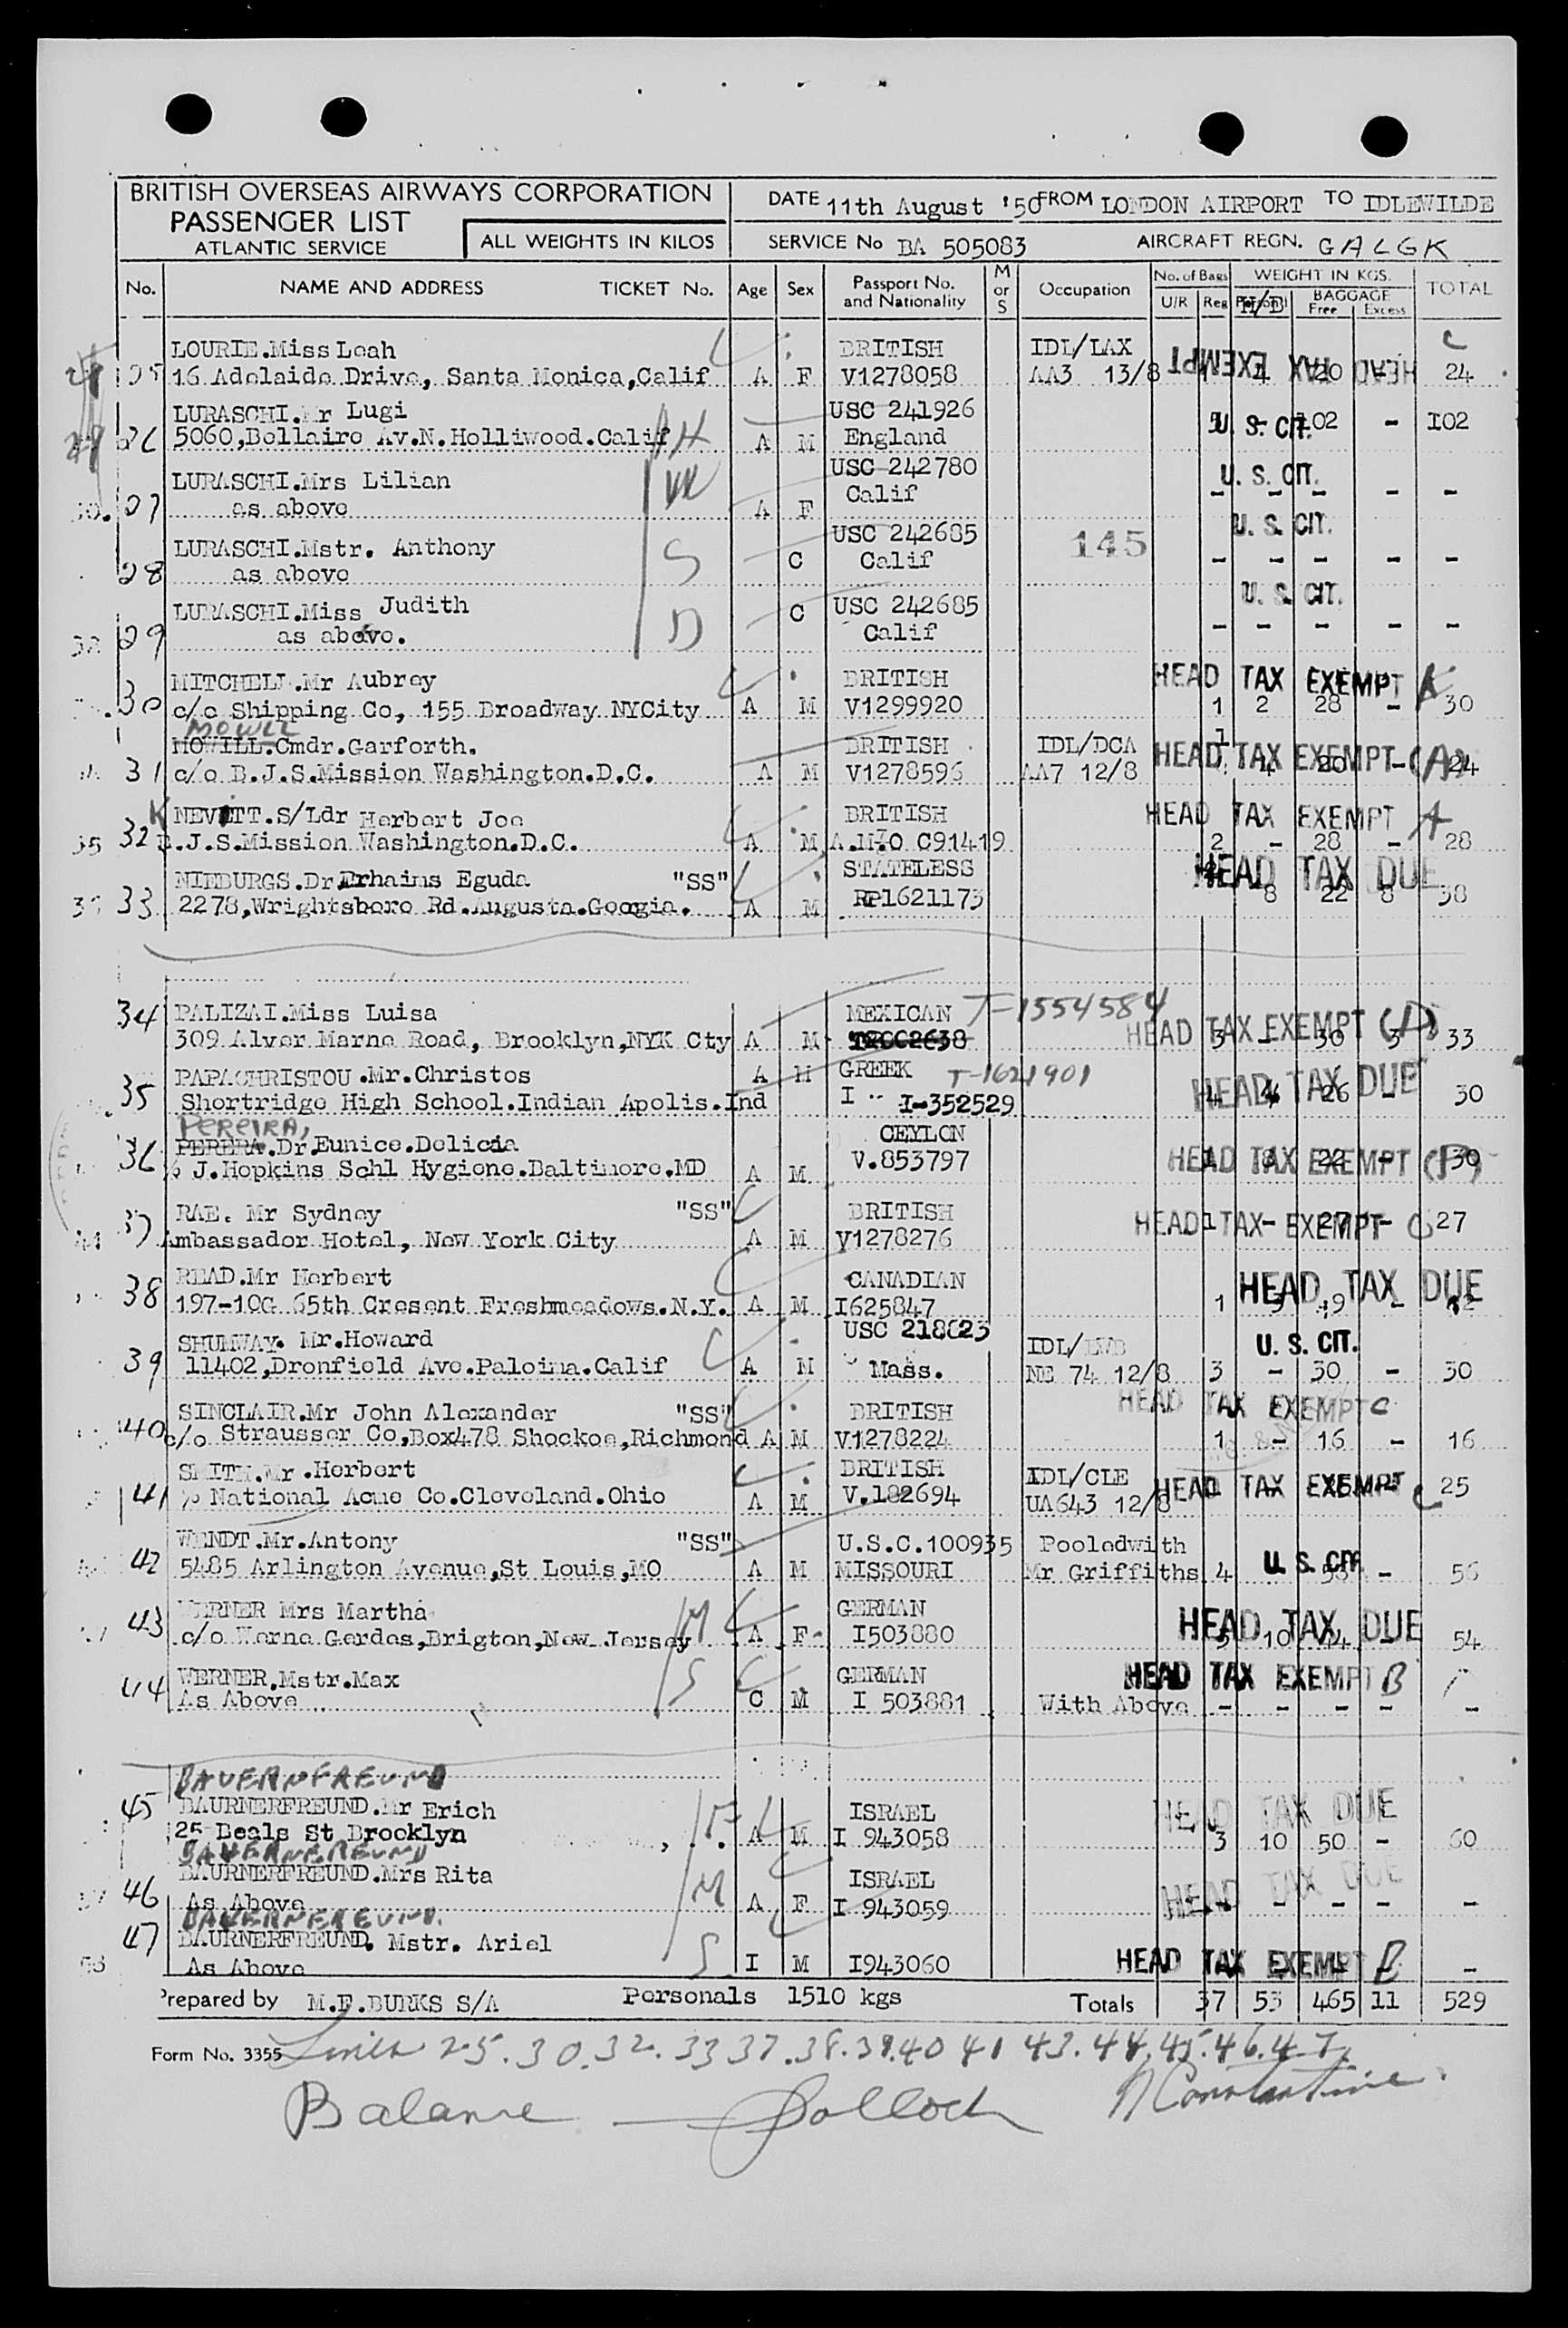 BRITISH OVERSEAS AIRWAYS CORPORATION
PASSENGER LIST
ATLANTIC SERVICE
ALL WEIGHTS IN KILOS
DATE 11th August '50 FROM LONDON AIRPORT TO IDLEWILDE
SERVICE No BA 505083 AIRCRAFT REGN. GALGK
No. NAME AND ADDRESS TICKET No. Age Sex Passport No. and Nationality M or S Occupation No. of Bags U/R Reg WEIGHT IN KGS. H/B BAGGAGE Free Excess TOTAL
LOURIE.Miss Leah BRITISH IDL/LAX C
25 16 Adelaide Drive, Santa Monica,Calif A F V1278058 AA3 13/8 HEAD TAX EXEMPT 1 4 20 - 24
LURASCHI.Mr Lugi USC 241926
26 5060,Bellaire Av.N.Holliwood.Calif H A M England U. S. CIT. - 102 - 102
LURASCHI.Mrs Lilian W USC 242780 U. S. CIT.
27 as above A F Calif - - - - -
LURASCHI.Mstr. Anthony S C USC 242685 145 U. S. CIT.
28 as above Calif - - - - -
LURASCHI.Miss Judith D C USC 242685 U. S. CIT.
29 as above. Calif - - - - -
MITCHELL.Mr Aubrey BRITISH HEAD TAX EXEMPT A
30 c/o Shipping Co, 155 Broadway NYCity A M V1299920 1 2 28 - 30
MOWLL
MOWILL.Cmdr.Garforth. BRITISH IDL/DCA HEAD TAX EXEMPT (A)
31 c/o B.J.S.Mission Washington.D.C. A M V1278596 AA7 12/8 1 4 20 - 24
K NEVITT.S/Ldr Herbert Joe BRITISH HEAD TAX EXEMPT A
32 B.J.S.Mission Washington.D.C. A M A.M.O C91419 2 - 28 - 28
NIEBURGS.Dr Erhains Eguda "SS" STATELESS HEAD TAX DUE
33 2278,Wrightsboro Rd.Augusta.Goorgia. A M RP1621173 8 22 8 38
34 PALIZAI.Miss Luisa MEXICAN T-1554584
309 Alver Marne Road, Brooklyn,NYK Cty A M HEAD TAX EXEMPT (D) 3 - 30 3 33
35 PAPACHRISTOU.Mr.Christos A M GREEK T-1621901
Shortridge High School.Indian Apolis.Ind I I-352529 HEAD TAX DUE 4 4 26 - 30
PEREIRA,
36 PERERA.Dr.Eunice.Delicia CEYLON
c/o J.Hopkins Schl Hygiene.Baltimore.MD A M V.853797 HEAD TAX EXEMPT (D) 1 8 22 - 30
37 RAE. Mr Sydney "SS" BRITISH HEAD TAX EXEMPT C 1 - 27 - 27
Ambassador Hotel, New York City A M V1278276
38 READ.Mr Herbert CANADIAN HEAD TAX DUE
197-10G 65th Cresent Freshmeadows.N.Y. A M I625847 1
39 SHUMWAY. Mr.Howard USC 218623 IDL/ U. S. CIT.
11402,Dronfield Ave.Paloima.Calif A M Mass. NE 74 12/8 3 - 30 - 30
SINCLAIR.Mr John Alexander "SS" BRITISH HEAD TAX EXEMPT C
40 c/o Strausser Co,Box478 Shockoe,Richmond A M V1278224 1 - 16 - 16
SMITH.Mr.Herbert BRITISH IDL/CLE
41 c/o National Acme Co.Cleveland.Ohio A M V.182694 UA643 12/8 HEAD TAX EXEMPT C 25
WENDT.Mr.Antony "SS" U.S.C.100935 Pooledwith
42 5485 Arlington Avenue,St Louis,MO A M MISSOURI Mr Griffiths 4 U. S. CIT. - 56
43 WERNER Mrs Martha M GERMAN
c/o Werne Gerdes,Brigton,New Jersey A F I503880 HEAD TAX DUE 3 10 44 54
WERNER.Mstr.Max S GERMAN HEAD TAX EXEMPT B
44 As Above C M I 503881 With Above - - - - -
BAUERNFREUND
45 BAURNERFREUND.Mr Erich F ISRAEL HEAD TAX DUE
25 Beals St Brooklyn A M I 943058 3 10 50 - 60
BAUERNFREUND
BAURNERFREUND.Mrs Rita M ISRAEL HEAD TAX DUE
46 As Above A F I 943059 - - - - -
BAUERNFREUND.
47 BAURNERFREUND. Mstr. Ariel S
As Above I M I943060 HEAD TAX EXEMPT B -
Prepared by M.F.BURKS S/A Personals 1510 kgs Totals 37 53 465 11 529
Form No. 3355 Lines 25.30.32.33 37.38.39.40 41 43.44.45.46.47.
Balance — Pollock N Constantine.